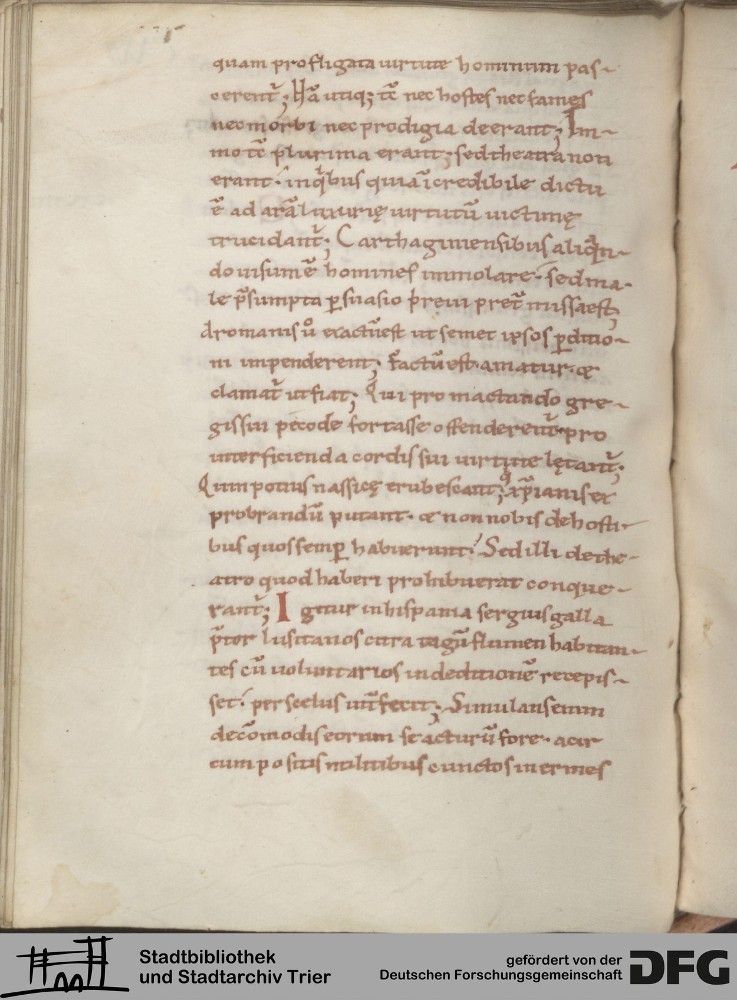 quam profligata uirtute hominum pas-
cerent̄; Hā utiq; tc̄ nec hostes nec fames
nec morbi nec prodigia deerant; Im-
mo tc̄ plurima erant; sed theatra non
erant. in qͥbus quia īcredibile dictu
ē ad arā luxurię uirtutū uictimę
trucidant̄; Carthaginiensibus aliqͣn-
do uisum ē homines immolare. sed ma-
le p̄sumpta ꝑsuasio breui pret̄missa est;
romanis ů exactū est ut semet ipsos ꝑditio-
ni impenderent; Factū est. amatur. &
clamat̄ ut fiat; Qui pro mactando gre-
gis sui pecode fortasse offenderent̄. pro
interficienda cordis sui uirtute lętant̄;
Quin potius nassicę erubescant; qͥ xp̄ianis ex
probrandū putant. & non nobis de hosti-
bus quos semꝑ habuerunt. Sed illi de the-
atro quod haberi prohibuerat conque-
rant̄; Igitur in hispania sergius galla
p̄tor lusitanos citra tagū flumen habitan-
tes cū uoluntarios in deditionē recepis-
set. per scelus int̄fecit; Simulans enim
de cōmodis eorum se acturū fore. acir
cumpositis militibus cunctos inermes
Stadtbibliothek
und Stadtarchiv Trier
gefördert von der
Deutschen Forschungsgemeinschaft
DFG